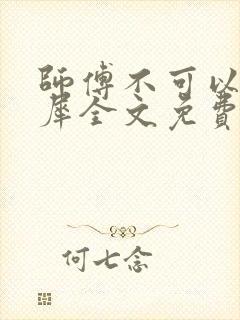 師傅不可以
犀全文免費
何七念